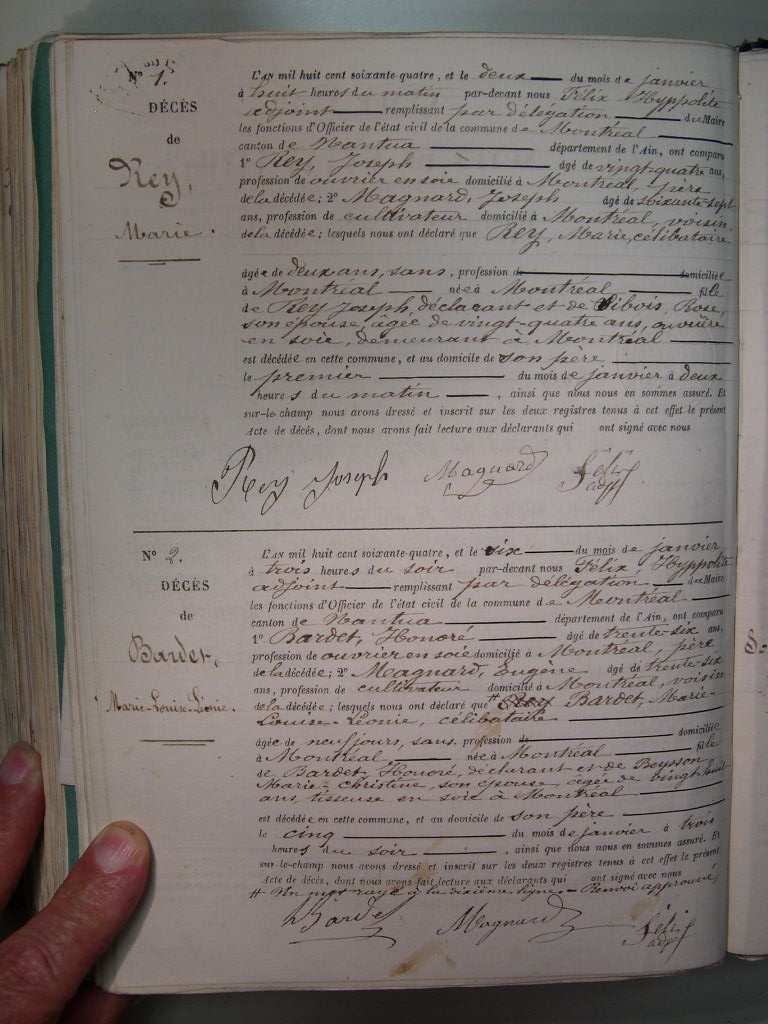 N° 1.
DÉCÈS
de
Rey,
Marie.
L'AN mil huit cent soixante-quatre, et le deux du mois de janvier
à huit heures du matin par-devant nous Félix, Hyppolite
adjoint remplissant par délégation du Maire
les fonctions d'Officier de l'état civil de la commune de Montréal
canton de Nantua département de l'Ain, ont comparu
1° Rey, Joseph âgé de vingt-quatre ans,
profession de ouvrier en soie domicilié à Montréal, père
de la décédée; 2° Magnard, Joseph âgé de soixante-sept
ans, profession de cultivateur domicilié à Montréal, voisin
de la décédée; lesquels nous ont déclaré que Rey, Marie, célibataire
âgée de deux ans, sans, profession de domiciliée
à Montréal née à Montréal fille
de Rey Joseph, déclarant et de Sibois, Rose,
son épouse, âgée de vingt-quatre ans, ouvrière
en soie, demeurant à Montréal
est décédée en cette commune, et au domicile de son père
le premier du mois de janvier à deux
heures du matin, ainsi que nous nous en sommes assuré. Et
sur-le-champ nous avons dressé et inscrit sur les deux registres tenus à cet effet le présent
Acte de décès, dont nous avons fait lecture aux déclarants qui ont signé avec nous
Rey Joseph Magnard Félix
adj
N° 2.
DÉCÈS
de
Bardet,
Marie-Louise-Léonie.
L'AN mil huit cent soixante-quatre, et le six du mois de janvier
à trois heures du soir par-devant nous Félix, Hyppolite
adjoint remplissant par délégation du Maire
les fonctions d'Officier de l'état civil de la commune de Montréal
canton de Nantua département de l'Ain, ont comparu
1° Bardet, Honoré âgé de trente-six ans,
profession de ouvrier en soie domicilié à Montréal, père
de la décédée; 2° Magnard, Eugène âgé de trente-six
ans, profession de cultivateur domicilié à Montréal, voisin
de la décédée; lesquels nous ont déclaré que # Rey Bardet, Marie-
Louise-Léonie, célibataire
âgée de neuf jours, sans, profession de domiciliée
à Montréal, née à Montréal fille
de Bardet Honoré, déclarant et de Beysson
Marie-Christine, son épouse âgée de vingt huit
ans tisseuse en soie à Montréal
est décédée en cette commune, et au domicile de son père
le cinq du mois de janvier à trois
heures du soir, ainsi que nous nous en sommes assuré. Et
sur-le-champ nous avons dressé et inscrit sur les deux registres tenus à cet effet le présent
Acte de décès, dont nous avons fait lecture aux déclarants qui ont signé avec nous
# Un mot rayé à la dixième ligne - Renvoi approuvé,
Bardet Magnard Félix
adj